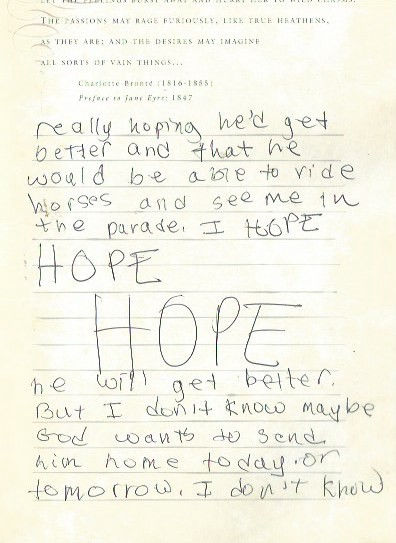 THE PASSIONS MAY RAGE FURIOUSLY, LIKE TRUE HEATHENS,
AS THEY ARE; AND THE DESIRES MAY IMAGINE
ALL SORTS OF VAIN THINGS...
Charlotte Brontë (1816-1855)
Preface to Jane Eyre: 1847
really hoping he'd get
better and that he
would be able to ride
horses and see me in
the parade. I HOPE
HOPE
HOPE
he will get better.
But I don't know maybe
God wants to send
him home today.or
tomorrow. I don't know